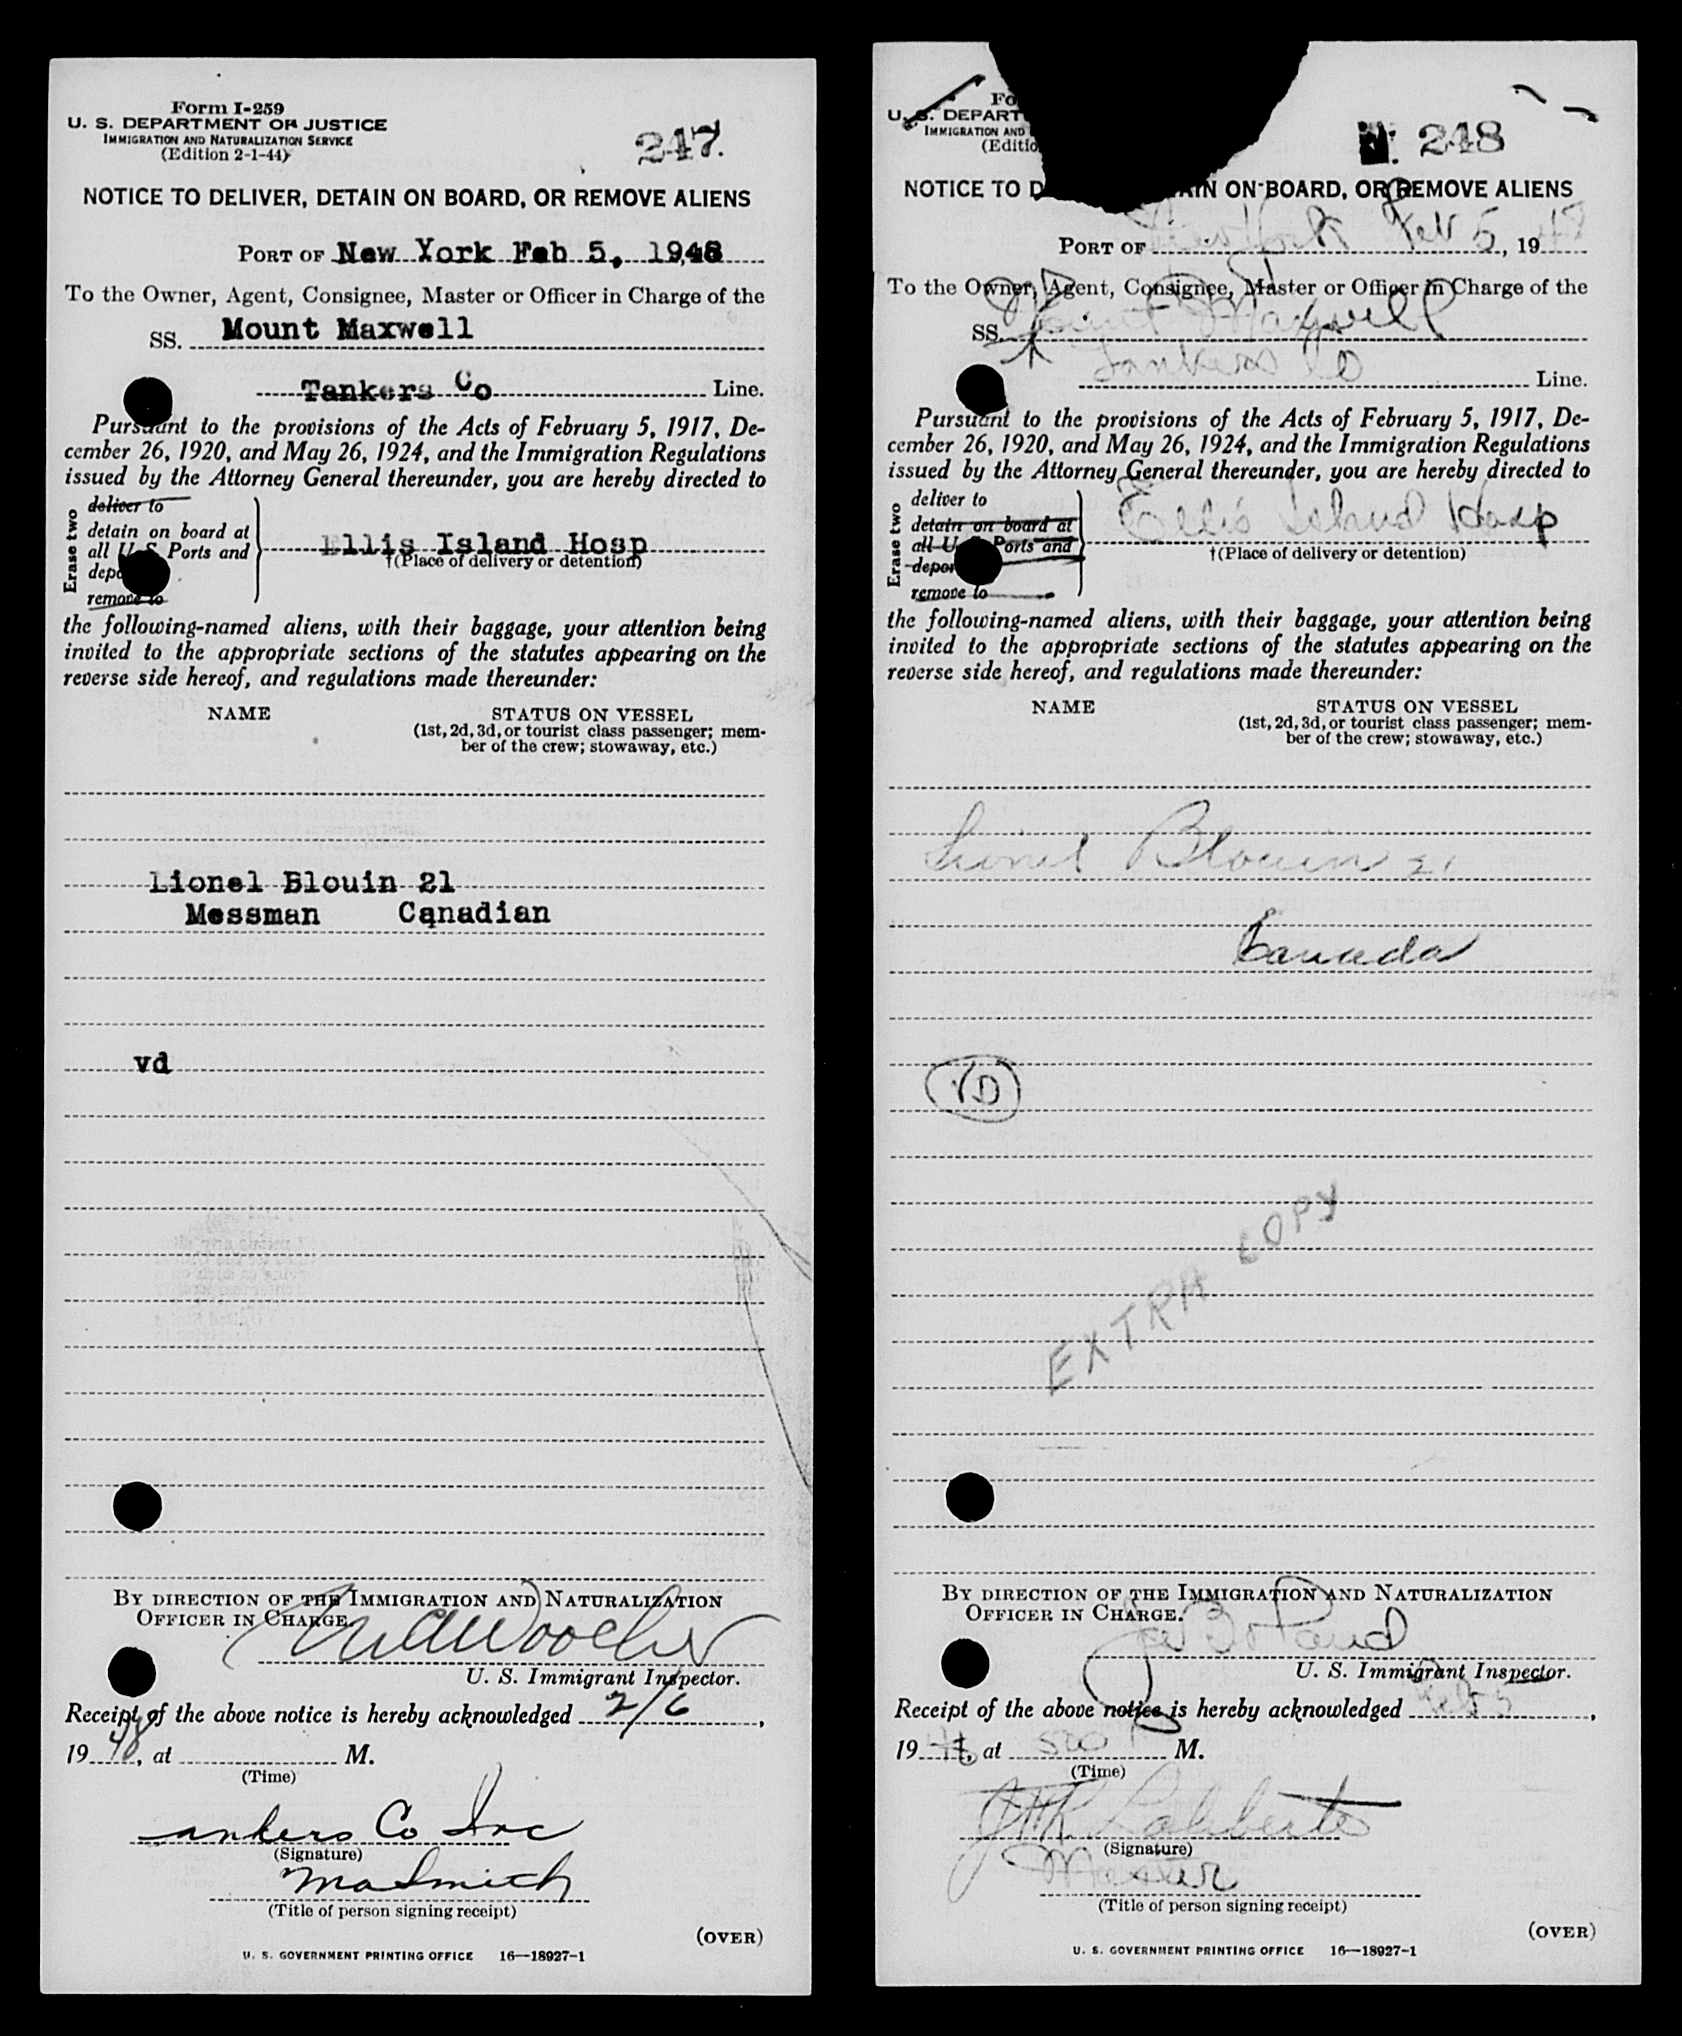 Form I-259
U. S. DEPARTMENT OF JUSTICE
IMMIGRATION AND NATURALIZATION SERVICE
(Edition 2-1-44)
247.
NOTICE TO DELIVER, DETAIN ON BOARD, OR REMOVE ALIENS
PORT OF New York Feb 5, 1948
To the Owner, Agent, Consignee, Master or Officer in Charge of the
SS. Mount Maxwell
Tankers Co Line.
Pursuant to the provisions of the Acts of February 5, 1917, De-
cember 26, 1920, and May 26, 1924, and the Immigration Regulations
issued by the Attorney General thereunder, you are hereby directed to
Erase two
deliver to
detain on board at
all U. S. Ports and
remove to
Ellis Island Hosp
†(Place of delivery or detention)
the following-named aliens, with their baggage, your attention being
invited to the appropriate sections of the statutes appearing on the
reverse side hereof, and regulations made thereunder:
NAME STATUS ON VESSEL
(1st, 2d, 3d, or tourist class passenger; mem-
ber of the crew; stowaway, etc.)
Lionel Blouin 21
Messman Canadian
vd
BY DIRECTION OF THE IMMIGRATION AND NATURALIZATION
OFFICER IN CHARGE.
U. S. Immigrant Inspector.
Receipt of the above notice is hereby acknowledged 2/6,
19 48, at M.
(Time)
ankers Co Inc
(Signature)
Smith
(Title of person signing receipt)
(OVER)
U. S. GOVERNMENT PRINTING OFFICE 16—18927-1
U. S. DEPART
IMMIGRATION AND
248
NOTICE TO ON BOARD, OR REMOVE ALIENS
PORT OF New York Feb 5, 19
To the Owner, Agent, Consignee, Master or Officer in Charge of the
SS. Mount Maxwell
Tankers Co Line.
Pursuant to the provisions of the Acts of February 5, 1917, De-
cember 26, 1920, and May 26, 1924, and the Immigration Regulations
issued by the Attorney General thereunder, you are hereby directed to
Erase two
deliver to
detain on board at
all U. S. Ports and
remove to
Ellis Island Hosp
†(Place of delivery or detention)
the following-named aliens, with their baggage, your attention being
invited to the appropriate sections of the statutes appearing on the
reverse side hereof, and regulations made thereunder:
NAME STATUS ON VESSEL
(1st, 2d, 3d, or tourist class passenger; mem-
ber of the crew; stowaway, etc.)
Lionel Blouin 21
Canada
VD
EXTRA COPY
BY DIRECTION OF THE IMMIGRATION AND NATURALIZATION
OFFICER IN CHARGE.
U. S. Immigrant Inspector.
Receipt of the above notice is hereby acknowledged Feb 5,
19 48, at 500 P M.
(Time)
Laliberte
(Signature)
Master
(Title of person signing receipt)
(OVER)
U. S. GOVERNMENT PRINTING OFFICE 16—18927-1